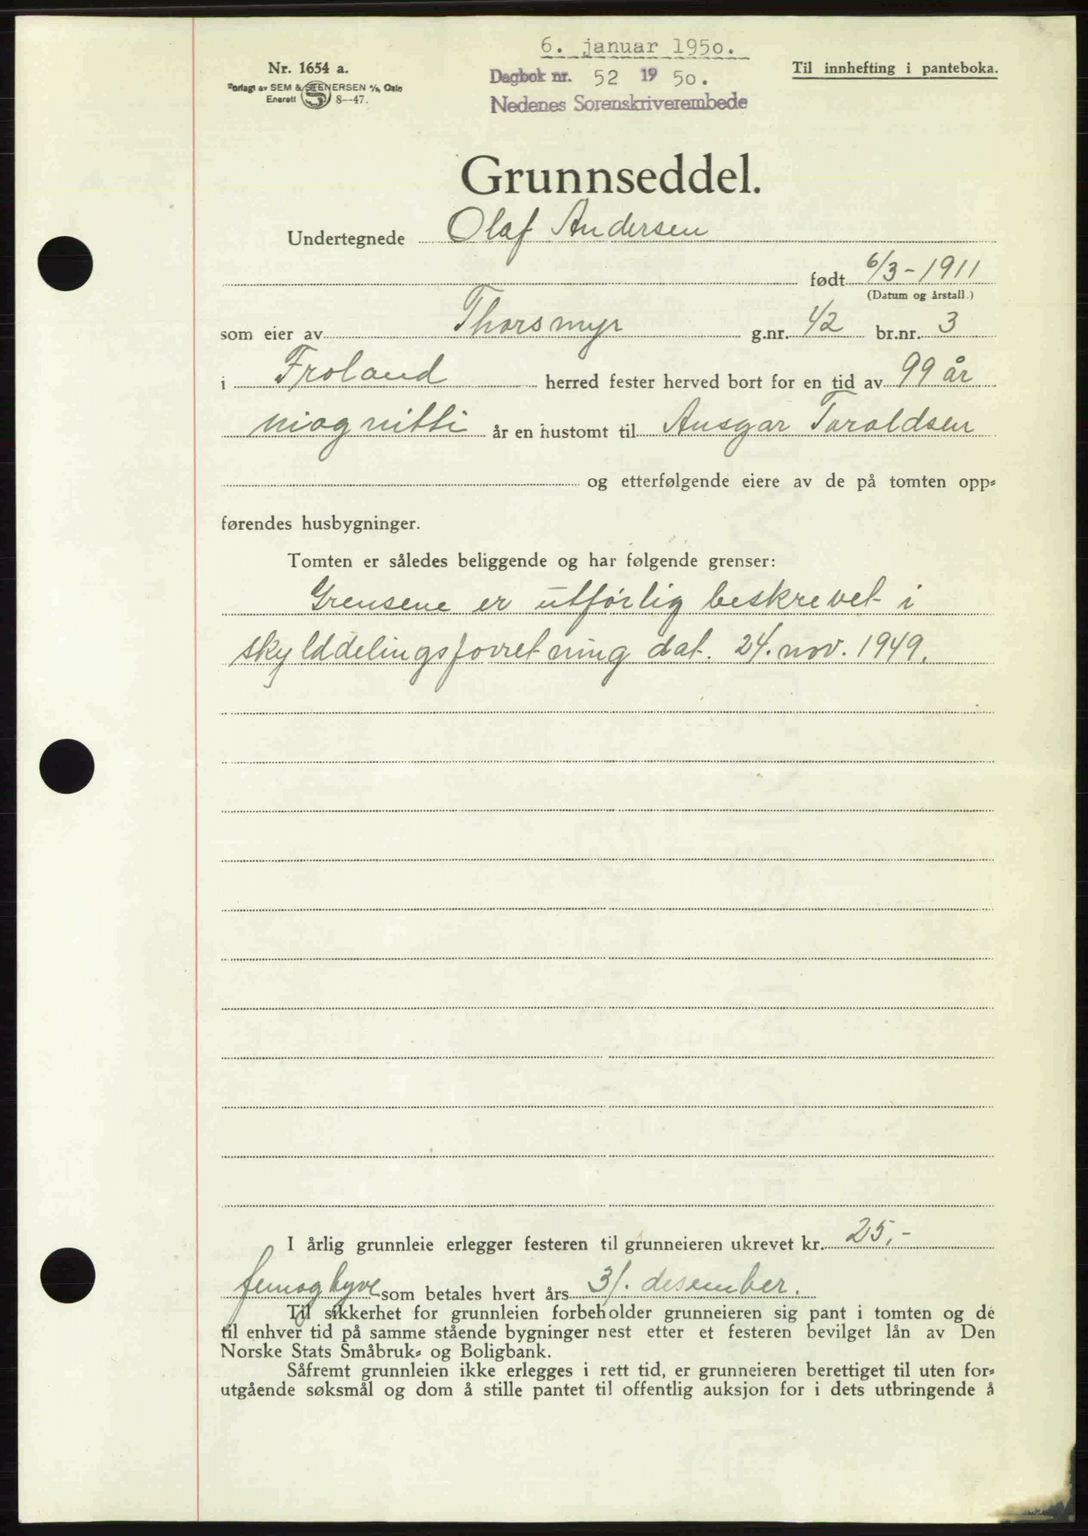 6. januar 1950.
Nr. 1654 a.
Forlagt av SEM & STENERSEN A/S, Oslo
Enerett S 8—47.
Dagbok nr. 52 1950.
Nedenes Sorenskriverembede
Til innhefting i panteboka.
Grunnseddel.
Undertegnede Olaf Andersen
født 6/3-1911
(Datum og årstall.)
som eier av Thorsmyr g.nr. 42 br.nr. 3
i Froland herred fester herved bort for en tid av 99 år
niognitti år en hustomt til Ansgar Taraldsen
og etterfølgende eiere av de på tomten opp-
førendes husbygninger.
Tomten er således beliggende og har følgende grenser:
Grensene er utførlig beskrevet i
skylddelingsforretning dat. 24. nov. 1949.
I årlig grunnleie erlegger festeren til grunneieren ukrevet kr. 25,-
femogtyve som betales hvert års 31. desember.
Til sikkerhet for grunnleien forbeholder grunneieren sig pant i tomten og de
til enhver tid på samme stående bygninger nest etter et festeren bevilget lån av Den
Norske Stats Småbruk- og Boligbank.
Såfremt grunnleien ikke erlegges i rett tid, er grunneieren berettiget til uten for-
utgående søksmål og dom å stille pantet til offentlig auksjon for i dets utbringende å